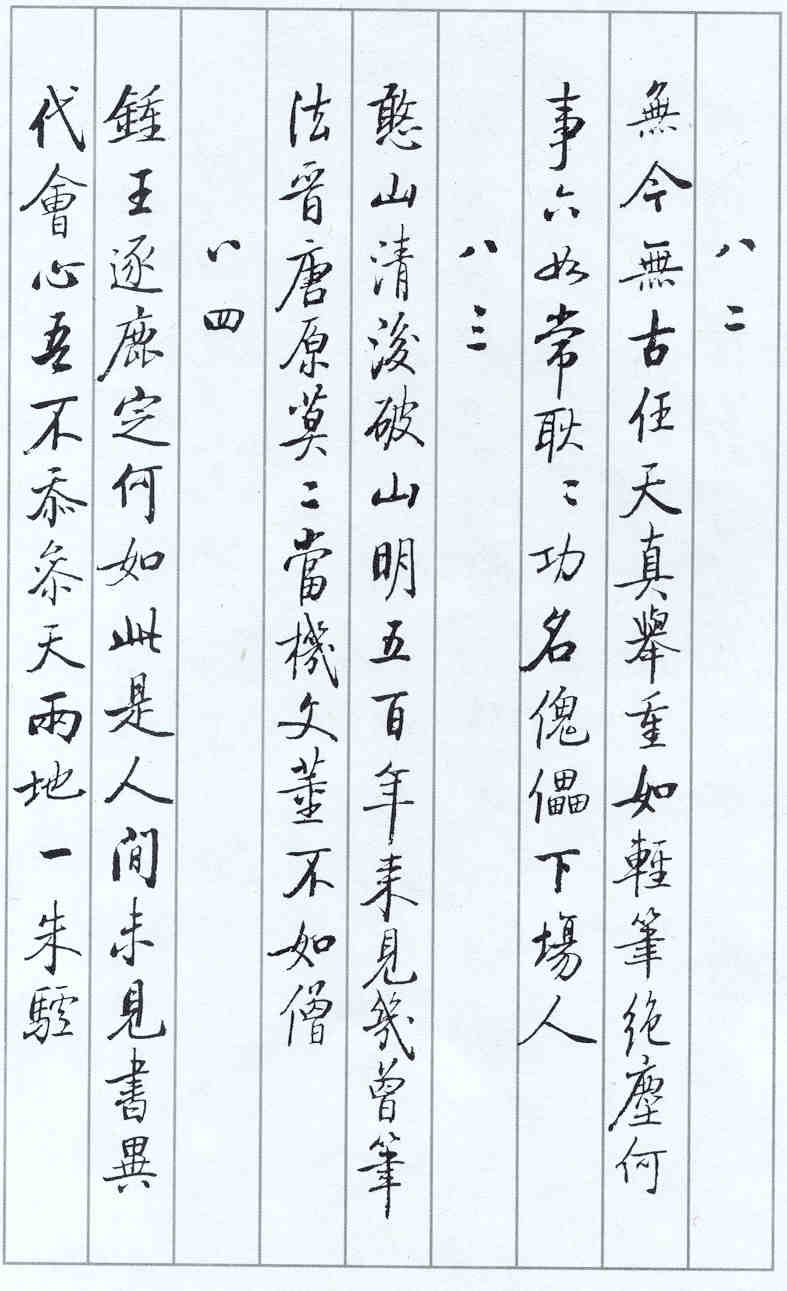 八二
無今無古任天真舉重如輕筆絶塵何
事六如常耿〻功名傀儡下場人
八三
憨山清後破山明五百年来見幾曾筆
法晋唐原莫二當機文董不如僧
八四
鍾王逐鹿定何如此是人間未見書異
代會心吾不忝叅天兩地一朱驢